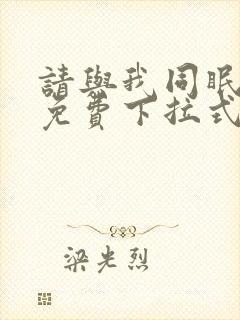 請與我同眠
免費下拉式
梁光烈